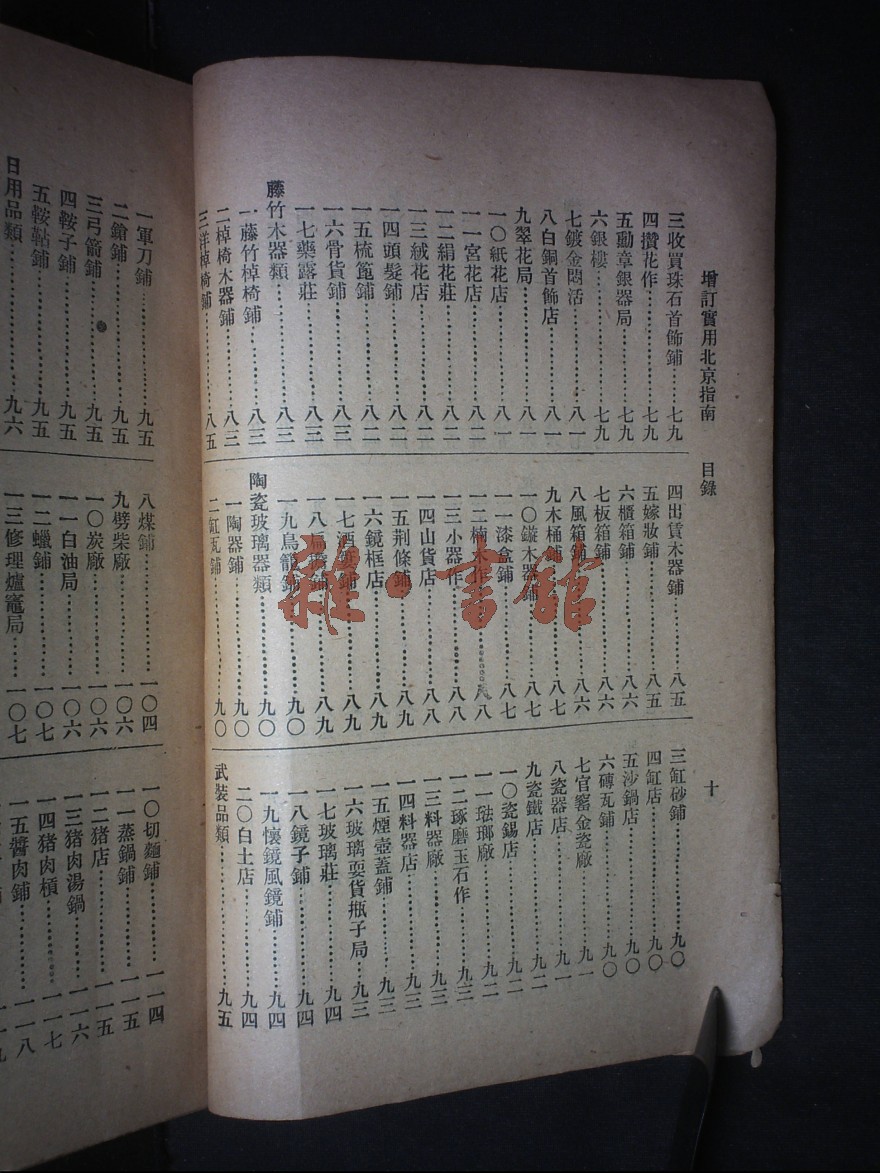 增訂實用北京指南 目錄 十
三收買珠石首飾鋪………七九
四攢花作………七九
五勳章銀器局………七九
六銀樓………七九
七鍍金悶活………八一
八白銅首飾店………八一
九翠花局………八一
一〇紙花店………八一
一一宮花店………八二
一二絹花莊………八二
一三絨花店………八二
一四頭髮鋪………八二
一五梳篦鋪………八二
一六骨貨鋪………八三
一七藥露莊………八三
藤竹木器類………八三
一藤竹棹椅鋪………八三
二棹椅木器鋪………八三
三洋棹椅鋪………八五
四出賃木器鋪………八五
五嫁妝鋪………八五
六櫃箱鋪………八六
七板箱鋪………八六
八風箱鋪………八六
九木桶鋪………八七
一〇鏇木器鋪………八七
一一漆盒鋪………八七
一二楠木作………八八
一三小器作………八八
一四山貨店………八八
一五荊條鋪………八九
一六鏡框店………八九
一七酒簍鋪………八九
一八扁擔鋪………八九
一九鳥籠鋪………九〇
陶瓷玻璃器類………九〇
一陶器鋪………九〇
二缸瓦鋪………九〇
三缸砂鋪………九〇
四缸店………九〇
五沙鍋店………九〇
六磚瓦鋪………九〇
七官窰金瓷廠………九一
八瓷器店………九一
九瓷鐵店………九二
一〇瓷錫店………九二
一一琺瑯廠………九二
一二琢磨玉石作………九三
一三料器廠………九三
一四料器店………九三
一五煙壺蓋鋪………九三
一六玻璃耍貨瓶子局………九三
一七玻璃莊………九四
一八鏡子鋪………九四
一九懷鏡風鏡鋪………九四
二〇白土店………九四
武裝品類………九五
一軍刀鋪………九五
二鎗鋪………九五
三弓箭鋪………九五
四鞍子鋪………九五
五鞍韂鋪………九五
日用品類………九六
八煤鋪………一〇四
九劈柴廠………一〇六
一〇炭廠………一〇六
一一白油局………一〇六
一二蠟鋪………一〇七
一三修理爐竈局………一〇七
一〇切麵鋪………一一四
一一蒸鍋鋪………一一五
一二猪店………一一五
一三猪肉湯鍋………一一六
一四猪肉槓………一一七
一五醬肉鋪………一一八
雜·書館